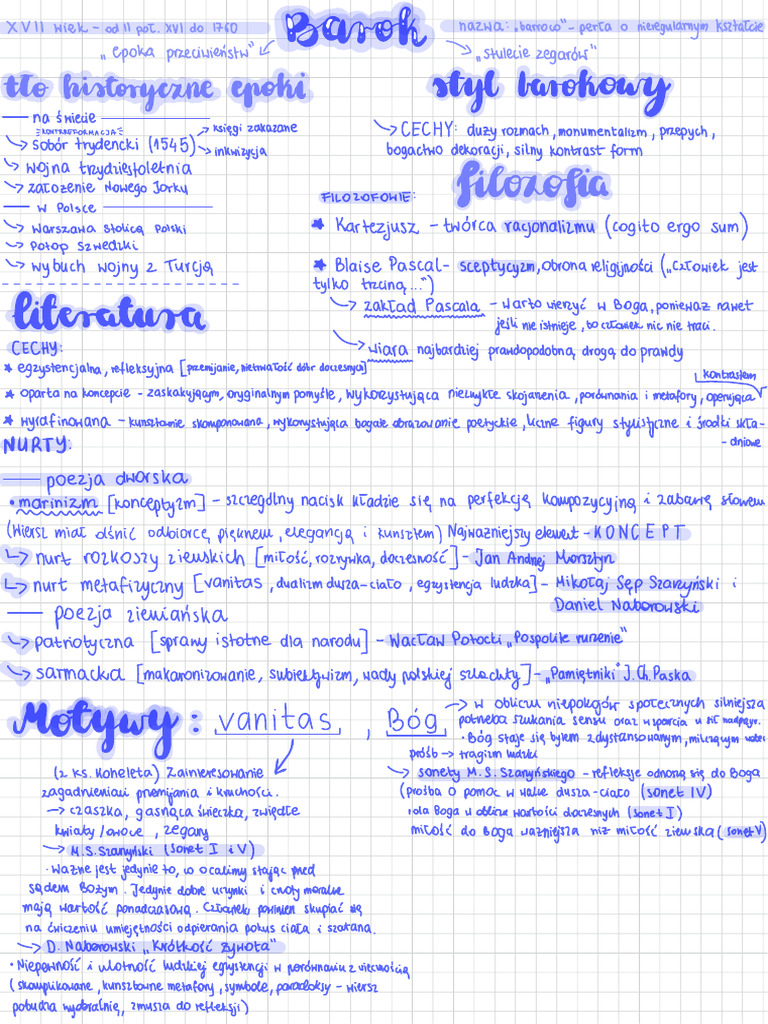 Barok
XVII wiek - od II poł. XVI do 1760
nazwa: „barroco" - perła o nieregularnym kształcie
„epoka przeciwieństw"
„stulecie zegarów"
tło historyczne epoki
— na świecie
KONTRREFORMACJA
→ sobór trydencki (1545)
→ księgi zakazane
→ inkwizycja
→ wojna trzydziestoletnia
→ założenie Nowego Jorku
— w Polsce
→ Warszawa stolicą Polski
→ Potop Szwedzki
→ wybuch wojny z Turcją
styl barokowy
→ CECHY: duży rozmach, monumentalizm, przepych,
bogactwo dekoracji, silny kontrast form
filozofia
FILOZOFOWIE:
★ Kartezjusz - twórca racjonalizmu (cogito ergo sum)
★ Blaise Pascal - sceptycyzm, obrona religijności („Człowiek jest
tylko trzciną...")
→ zakład Pascala - Warto wierzyć w Boga, ponieważ nawet
jeśli nie istnieje, to człowiek nic nie traci.
→ wiara najbardziej prawdopodobną drogą do prawdy
literatura
CECHY:
★ egzystencjalna, refleksyjna [przemijanie, nietrwałość dóbr doczesnych]
★ oparta na koncepcie - zaskakującym, oryginalnym pomyśle, wykorzystująca niezwykłe skojarzenia, porównania i metafory, operująca
kontrastem
★ wyrafinowana - kunsztownie skomponowana, wykorzystująca bogate obrazowanie poetyckie, liczne figury stylistyczne i środki skła-
-dniowe
NURTY:
— poezja dworska
• marinizm [konceptyzm] - szczególny nacisk kładzie się na perfekcję kompozycyjną i zabawę słowem
(Wiersz miał olśnić odbiorcę pięknem, elegancją i kunsztem) Najważniejszy element - KONCEPT
↳ nurt rozkoszy ziemskich [miłość, rozrywka, doczesność] - Jan Andrzej Morsztyn
↳ nurt metafizyczny [vanitas, dualizm dusza-ciało, egzystencja ludzka] - Mikołaj Sęp Szarzyński i
Daniel Naborowski
— poezja ziemiańska
→ patriotyczna [sprawy istotne dla narodu] - Wacław Potocki „Pospolite ruszenie"
→ sarmacka [makaronizowanie, subiektywizm, wady polskiej szlachty] - „Pamiętniki" J.Ch. Paska
Motywy: vanitas, Bóg
→ w obliczu niepokojów społecznych silniejsza
potrzeba szukania sensu oraz wsparcia u sił nadprzyr.
• Bóg staje się bytem zdystansowanym, milczącym wobec
próśb → tragizm ludzki
→ sonety M.S. Szarzyńskiego - refleksje odnoszą się do Boga
(prośba o pomoc w walce dusza-ciało (sonet IV)
rola Boga u oblicu wartości doczesnych (sonet I)
miłość do Boga ważniejsza niż miłość ziemska (sonet V)
(z ks. Koheleta) Zainteresowanie
zagadnieniami przemijania i kruchości.
→ czaszka, gasnąca świeczka, zwiędłe
kwiaty/owoce, zegary
→ M.S. Szarzyński (sonet I i V)
• Ważne jest jedynie to, co ocalimy stając przed
sądem Bożym. Jedynie dobre uczynki i cnoty moralne
mają wartość ponadczasową. Człowiek powinien skupiać się
na ćwiczeniu umiejętności odpierania pokus ciała i szatana.
→ D. Naborowski „Krótkość żywota"
• Niepewność i ulotność ludzkiej egzystencji w porównaniu z wiecznością
(skomplikowane, kunsztowne metafory, symbole, paradoksy - wiersz
pobudza wyobraźnię, zmusza do refleksji)